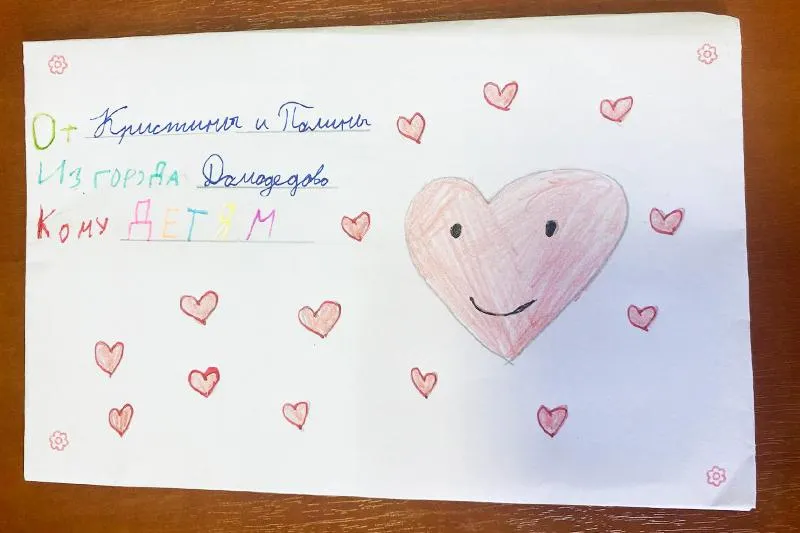 От Кристины и Полины
Из города Домодедово
Кому ДЕТЯМ